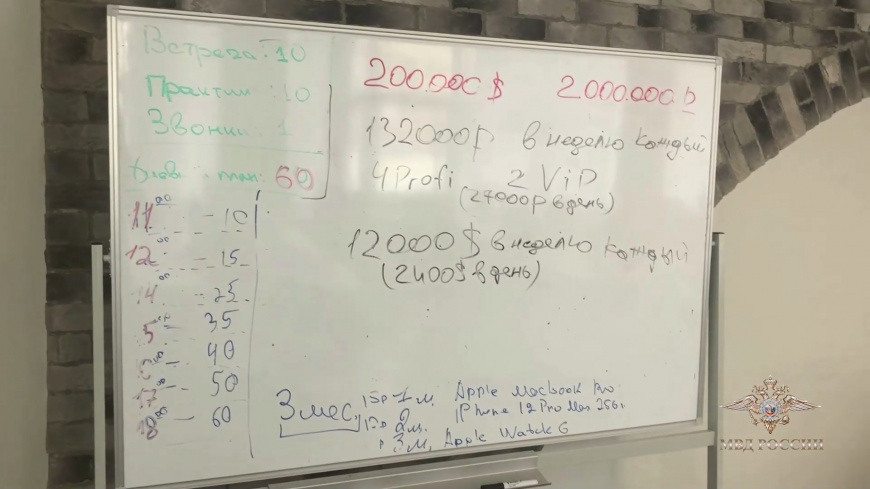 Встреча: 10
Практик 10
Звонки 1
план: 60
11 00 - 10
12 00 - 15
14 00 - 25
15 00 - 35
16 00 - 40
17 00 - 50
18 00 - 60
200.000 $ 2.000.000 р
132000р в неделю каждый
4 Profi 2 ViP
(27000р в день)
12000$ в неделю каждый
(2400$ в день)
3 мес.
1м. Apple Macbook Pro
2м. iPhone 12 Pro Max 256г.
3м, Apple Watch 6
МВД РОССИИ